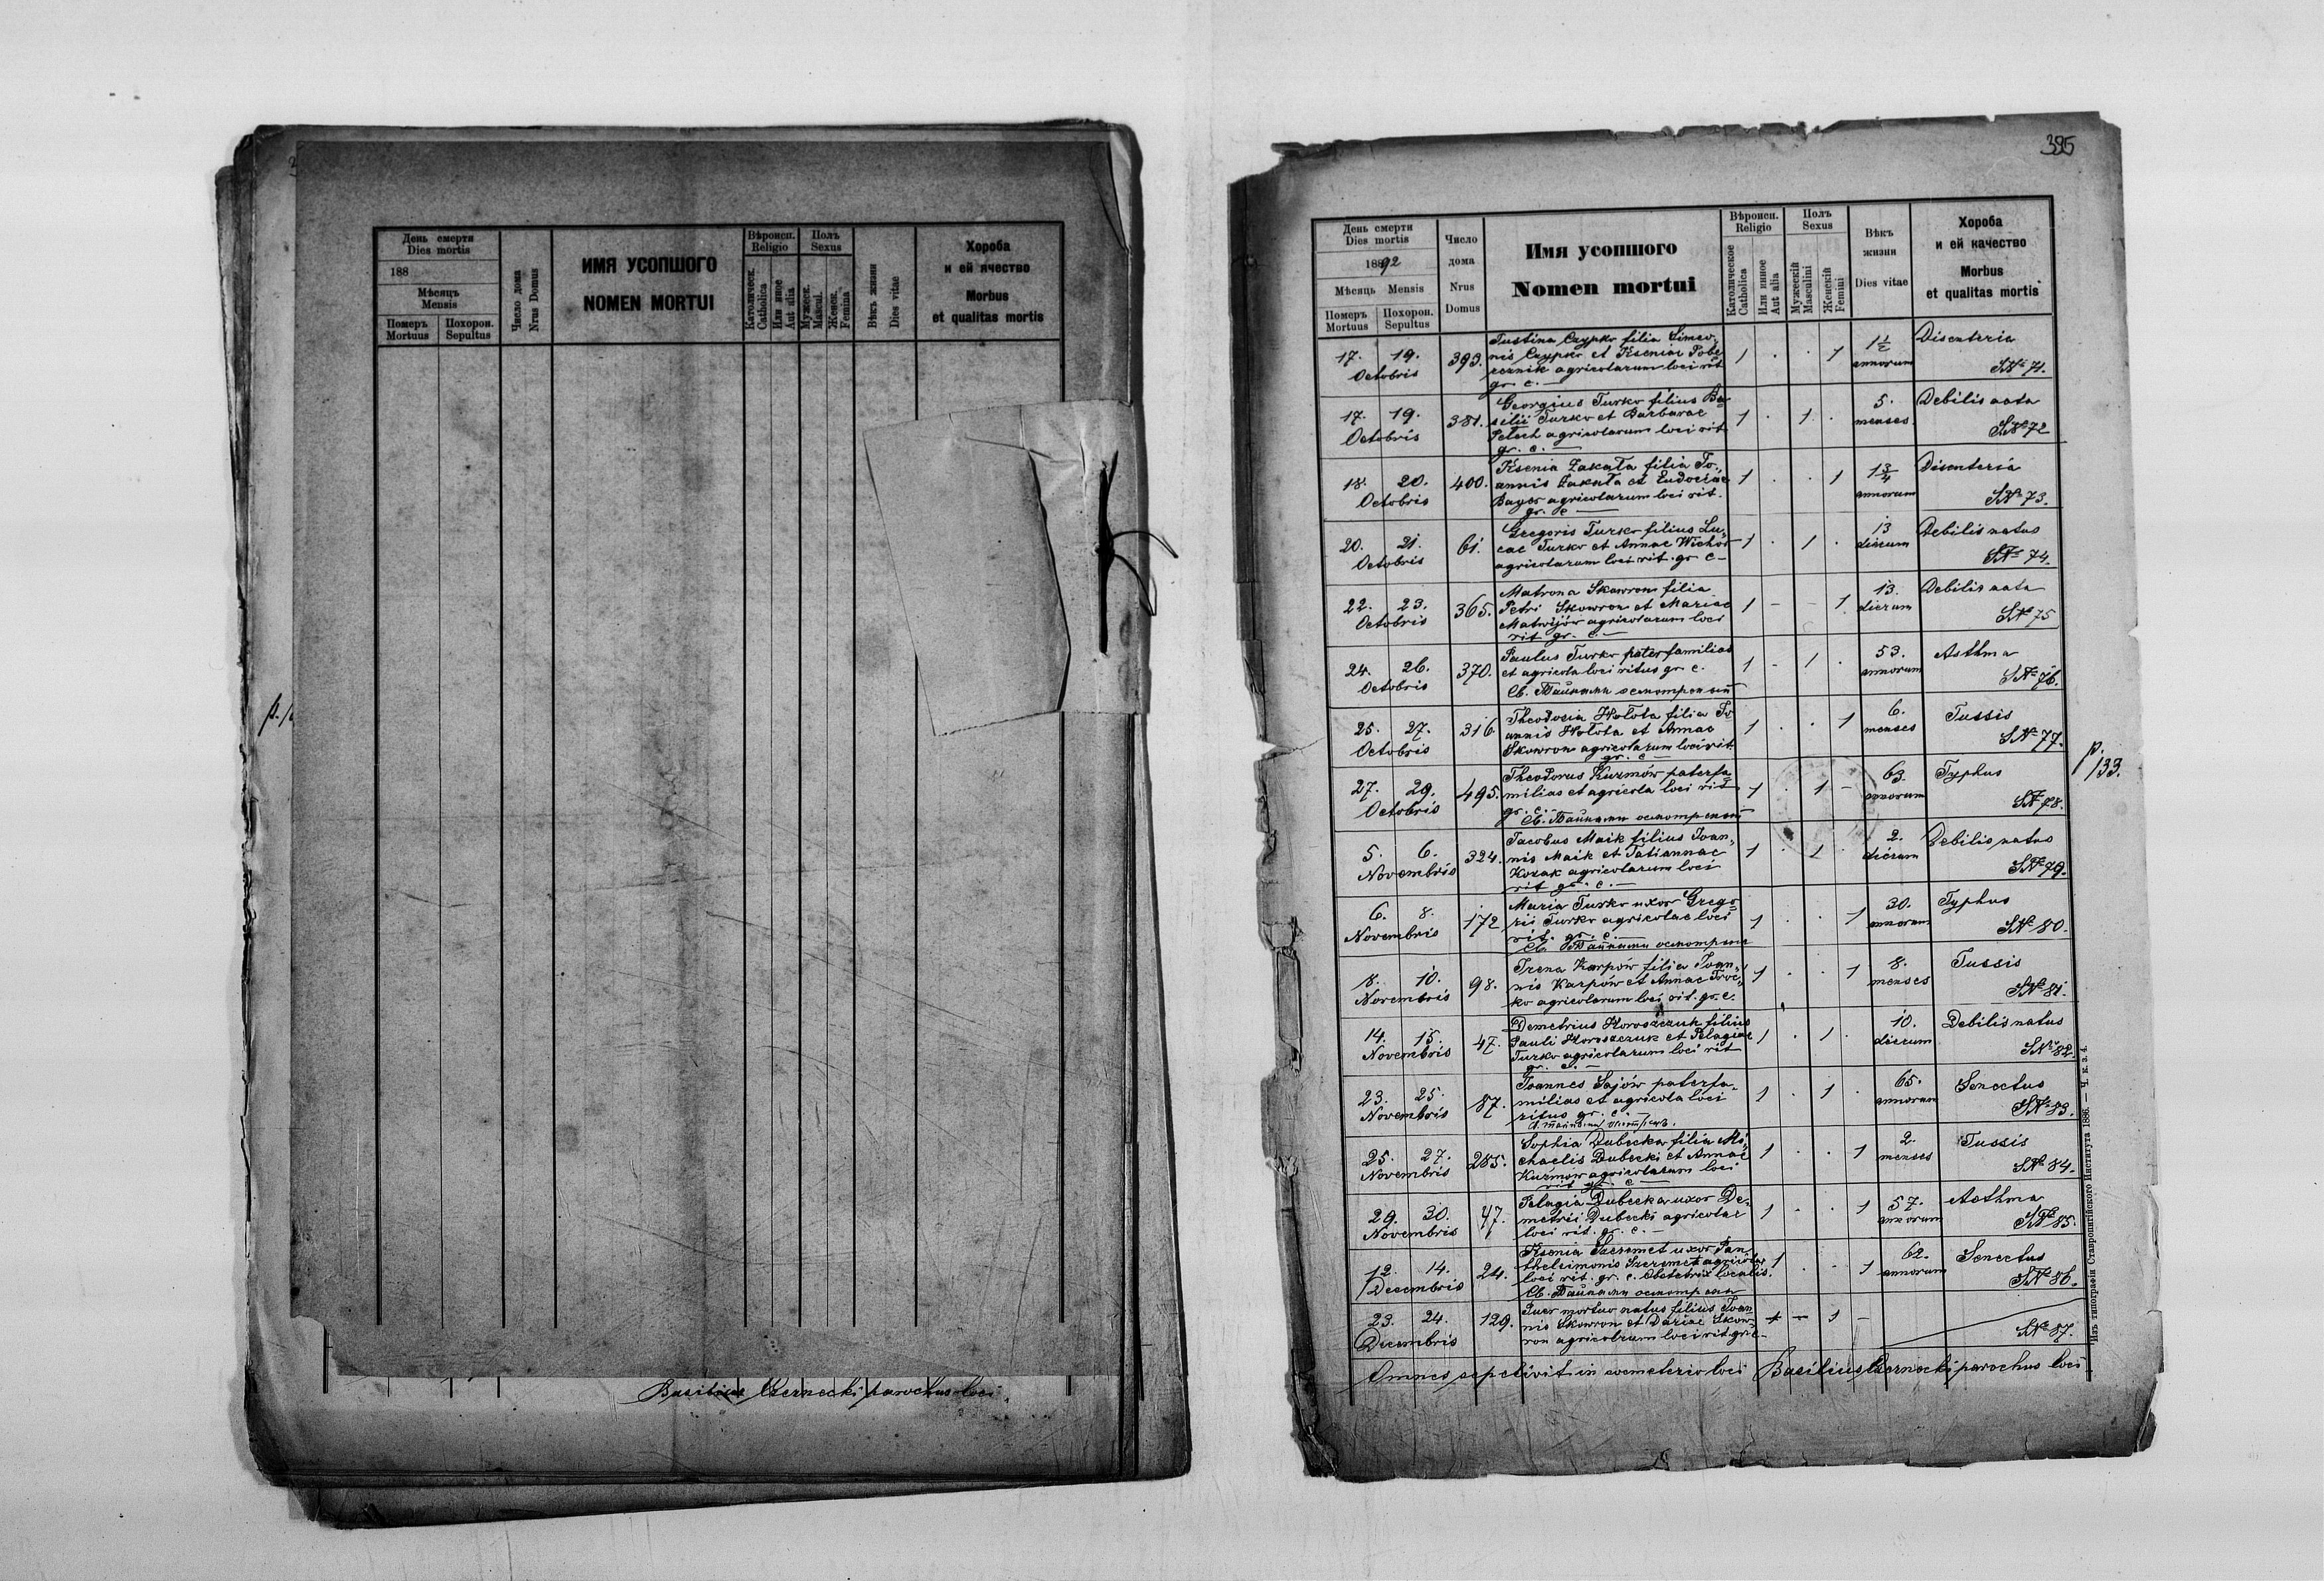 День смерти
Dies mortis
188
Мѣсяцъ
Mensis
Померъ
Mortuus
Похорон.
Sepultus
Число дома
Nrus Domus
ИМЯ УСОПШОГО
NOMEN MORTUI
Вѣроисп.
Religio
Католическ.
Catholica
Или иное
Aut alia
Полъ
Sexus
Мужеск.
Mascul.
Женск.
Femina
Вѣкъ жизни
Dies vitae
Хороба
и ей ячество
Morbus
et qualitas mortis
Basilius Czernecki parochus loci
395
День смерти
Dies mortis
1892
Мѣсяць Mensis
Померъ
Mortuus
Похорон.
Sepultus
Число
дома
Nrus
Domus
Имя усопшого
Nomen mortui
Вѣроисп.
Religio
Католическое
Catholica
Или инное
Aut alia
Полъ
Sexus
Мужескій
Masculini
Женскій
Femini
Вѣкъ
жизни
Dies vitae
Хороба
и ей качество
Morbus
et qualitas mortis
17. 19.
Octobris
393.
Justina Czypko filia Simeo-
nis Czypko et Kseniae Pobe-
reznik agricolarum loci rit
gr. c.
1 . . 1
1½
annorum
Disenteria
SN 71.
17. 19.
Octobris
381.
Georgius Turko filius Ba-
silii Turko et Barbarae
Petech agricolarum loci rit
gr. c.
1 . 1 .
5.
menses
Debilis nata
SN 72
18. 20.
Octobris
400.
Ksenia Zakała filia Jo-
annis Zakała et Eudociae
Bayor agricolarum loci rit.
gr. c
1 . . 1
1¾
annorum
Disenteria
SN 73.
20. 21.
Octobris
61.
Gregoris Turko filius Lu-
cae Turko et Annae Wichor
agricolarum loci rit. gr c
1 . 1 .
13
dierum
Debilis natus
SN 74.
22. 23.
Octobris
365.
Matrona Skowron filia
Petri Skowron et Mariae
Matwijów agricolarum loci
rit gr. c.
1 - - 1
13.
dierum
Debilis nata
SN 75
24. 26.
Octobris
370.
Paulus Turko paterfamilias
et agricola loci ritus gr. c.
Св. Тайнами осмотренный
1 - 1 .
53.
annorum
Asthma
SN 76.
25. 27.
Octobris
316
Theodosia Hołota filia Jo-
annis Hołota et Annae
Skowron agricolarum loci rit
gr. c
1 . . 1
6.
menses
Tussis
SN 77.
27. 29.
Octobris
495.
Theodorus Kuzmów paterfa-
milias et agricola loci rit
gr. c.
Св. Тайнами осмотренный
1 . 1 -
63.
annorum
Typhus
SN 78.
p.
133.
5. 6.
Novembris
324.
Jacobus Maik filius Joan-
nis Maik et Tatiannae
Kozak agricolarum loci
rit gr. c.
1 . 1 .
2.
dierum
Debilis natus
SN 79.
6. 8.
Novembris
172
Maria Turko uxor Grego-
rii Turko agricolae loci
rit. gr. c.
Св. Тайнами осмотрена
1 . . 1
30.
annorum
Typhus
SN 80.
8. 10.
Novembris
98.
Irena Karpów filia Joan-
nis Karpów et Annae Troc-
ko agricolarum loci rit. gr. c.
1 . . 1
8.
menses
Tussis
SN 81.
14. 15.
Novembris
47.
Demetrius Horoszczuk filius
Pauli Horoszczuk et Pelagiae
Turko agricolarum loci rit
gr. c.
1 . 1 .
10.
dierum
Debilis natus
SN 82.
23. 25.
Novembris
87.
Joannes Sajów paterfa-
milias et agricola loci
ritus gr. c.
1 . 1 .
65.
annorum
Senectus
SN 83.
25. 27.
Novembris
285.
Sophia Dubecka filia Mi-
chaelis Dubecki et Annae
Kuzmow agricolarum loci
rit gr. c
1 . . 1
2.
menses
Tussis
SN 84.
29. 30.
Novembris
47.
Pelagia Dubecka uxor De-
metrii Dubecki agricolae
loci rit. gr. c.
1 . . 1
57.
annorum
Asthma
SN 85.
12. 14.
Decembris
24.
Ksenia Szeremet uxor Pan-
theleimonis Szeremet agricolae
loci rit. gr. c. Obstetrix localis.
Св. Тайнами осмотрена
1 . . 1
62.
annorum
Senectus
SN 86.
23. 24.
Decembris
129.
Puer mortuo natus filius Joan-
nis Skowron et Dariae Skow-
ron agricolarum loci rit gr c
+ - 1 -
SN 87.
Omnes sepelivit in coemeterio loci Basilius Czernecki parochus loci
Изъ типографіи Ставропигійского Института 1886. — Ч. к. з. 4.